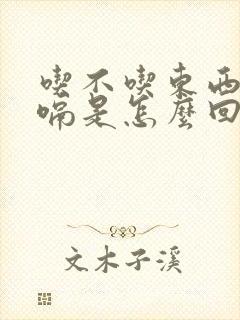 喫不喫東西
嗝是怎麼回
文木子溪